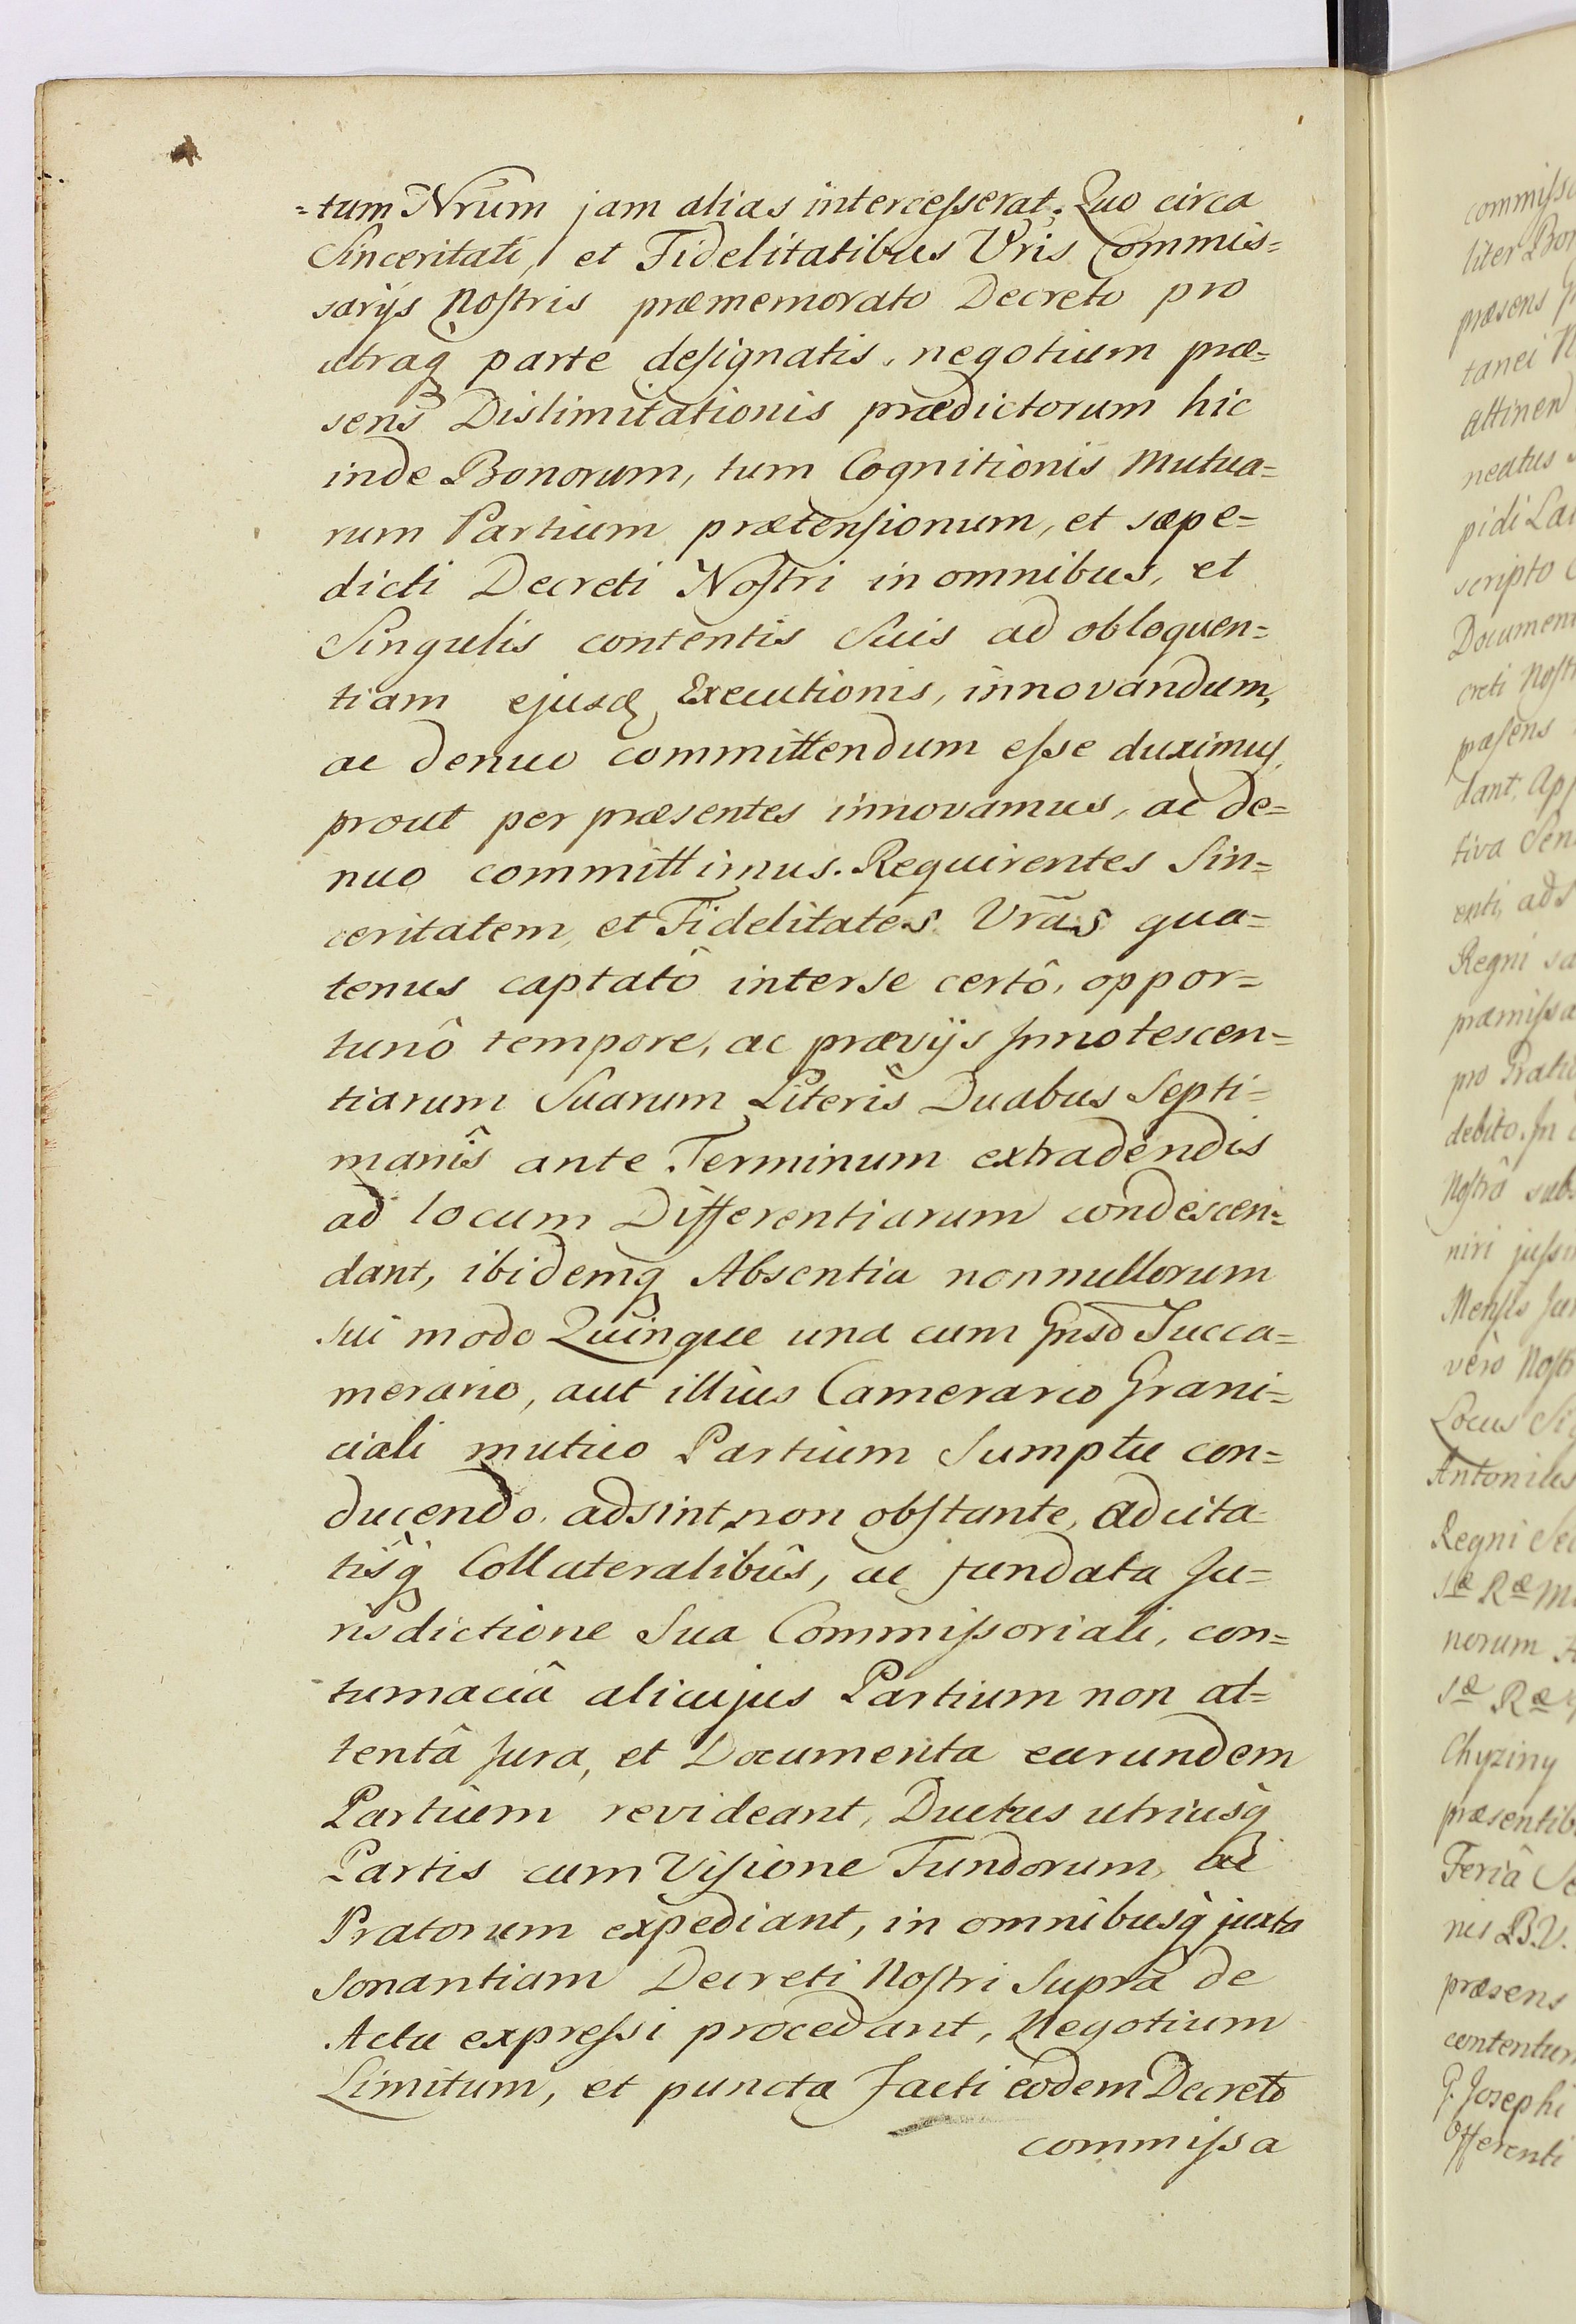 =tum Nrum jam alias intercesserat. Quo circa
Sinceritati, et Fidelitatibus Vris Commis=
sarijs Nostris præmemorato Decreto pro
utraq parte designatis, negotium præ=
sens Dislimitationis prædictorum hic
inde Bonorum, tum Cognitionis Mutua=
rum Partium prætensionum, et sæpe=
dicti Decreti Nostri in omnibus, et
Singulis contentis Suis ad obloquen=
tiam ejusq Executionis, innovandum,
ac denuo committendum esse duximus,
prout per præsentes innovamus, ac de=
nuo committimus. Requirentes Sin=
ceritatem, et Fidelitates Vras qua=
tenus captatô inter se certô, oppor=
tunô tempore, ac prævijs Innotescen=
tiarum Suarum Literis Duabus Septi=
manîs ante Terminum extradendis
ad locum Differentiarum condescen=
dant, ibidemq Absentia nonnullorum
sui modo Quinque una cum Gnso Succa=
merario, aut illius Camerario Grani=
ciali mutuo Partium Sumptu con=
ducendo, adsint, non obstante, adcita=
tisq Collateralibûs, ac fundata Ju=
risdictione Sua Commissoriali, con=
tumaciâ alicujus Partium non at=
tentâ Jura, et Documenta earundem
Partium revideant, Ductus utriusq
Partis cum Visione Fundorum, ac
Pratorum expediant, in omnibusq juxta
sonantiam Decreti Nostri Supra de
Actu expressi procedant, Negotium
Limitum, et puncta facti eodem Decreto
commissa
præsens
tanei
attinen
neatus
scripto
creti
præsens
dant,
tiva Sen
enti, ad
Regni
præmissa
debito. In
Nostrâ
Mensis
vero
Locus
Antonius
Regni
norum
Chyziny
præsentib
Feriâ
nis B.V.
præsens
G. Josephi
Offerenti